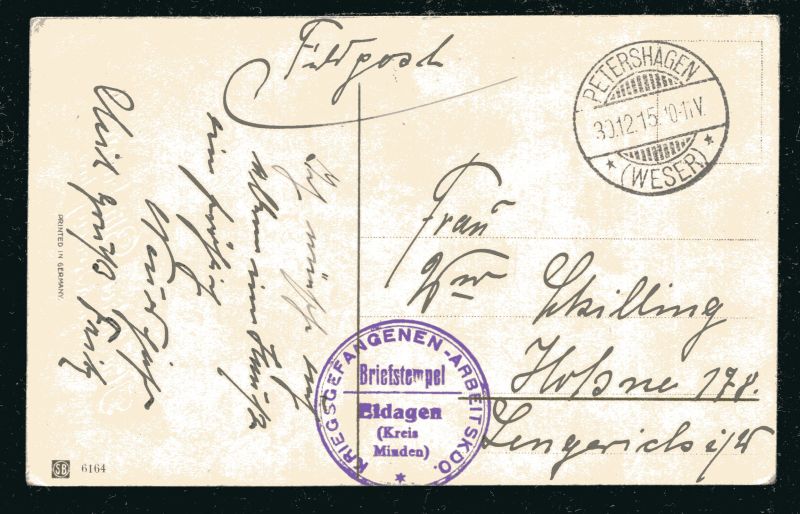 Feldpost
PETERSHAGEN
30.12.15. 10-11V.
* (WESER) *
Frau
Ww
Schilling
Hohne 178.
Lengerich i/W
KRIEGSGEFANGENEN-ARBEITSKDO.
Briefstempel
Eldagen
(Kreis
Minden)
*
Ich wünsche euch
allen ein
ein
Neujahr
Fritz
PRINTED IN GERMANY.
SB 6164